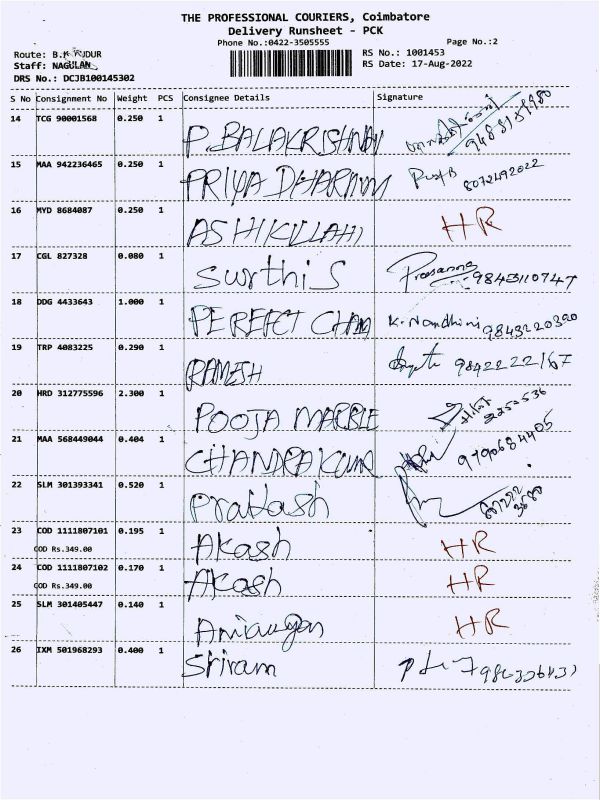 THE PROFESSIONAL COURIERS, Coimbatore
Delivery Runsheet - PCK
Phone No.:0422-3505555
Page No.:2
Route: B.K PUDUR
RS No.: 1001453
Staff: NAGULAN
RS Date: 17-Aug-2022
DRS No.: DCJB100145302
S No Consignment No Weight PCS Consignee Details Signature
14 TCG 90001568 0.250 1 P.BALAKRISHNAN
15 MAA 942236465 0.250 1 PRIYA DHARNUM 8072492022
16 MYD 8684087 0.250 1 ASHIKULLAH HR
17 CGL 827328 0.080 1 Surthi S Prasanna 9843110747
18 DDG 4433643 1.000 1 PERFECT CHAM K. Nandhini 9843220320
19 TRP 4083225 0.290 1 RAMESH 9842222167
20 HRD 312775596 2.300 1 POOJA MARBLE
21 MAA 568449044 0.404 1 CHANDRAKUMR 9790684405
22 SLM 301393341 0.520 1 Prakash
23 COD 1111807101 0.195 1 Akash HR
COD Rs.349.00
24 COD 1111807102 0.170 1 Akash HR
COD Rs.349.00
25 SLM 301405447 0.140 1 HR
26 IXM 501968293 0.400 1 Sriram